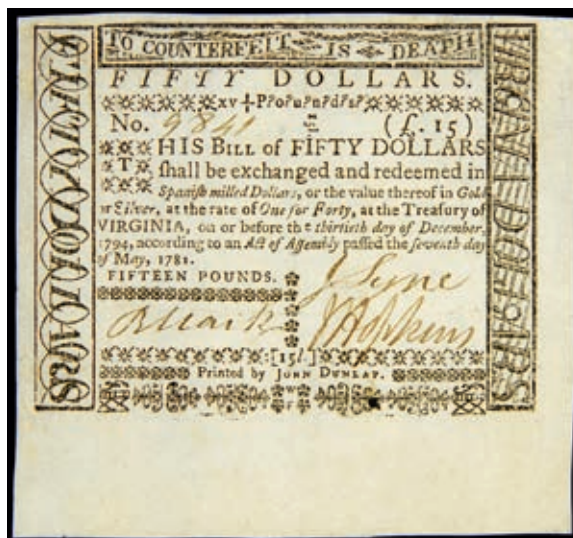 TO COUNTERFEIT IS DEATH
FIFTY DOLLARS.
xv P?o?u?n?d?s?
No. 9841 (£. 15)
THIS BILL of FIFTY DOLLARS
ſhall be exchanged and redeemed in
Spaniſh milled Dollars, or the value thereof in Gold
or Silver, at the rate of One for Forty, at the Treasury of
VIRGINIA, on or before the thirtieth day of December,
1794, according to an Act of Aſſembly paſſed the ſeventh day
of May, 1781.
FIFTEEN POUNDS.
J Lyne
J Hopkins
:[15l.]
Printed by JOHN DUNLAP.
FIFTY DOLLARS
VIRGINIA DOLLARS